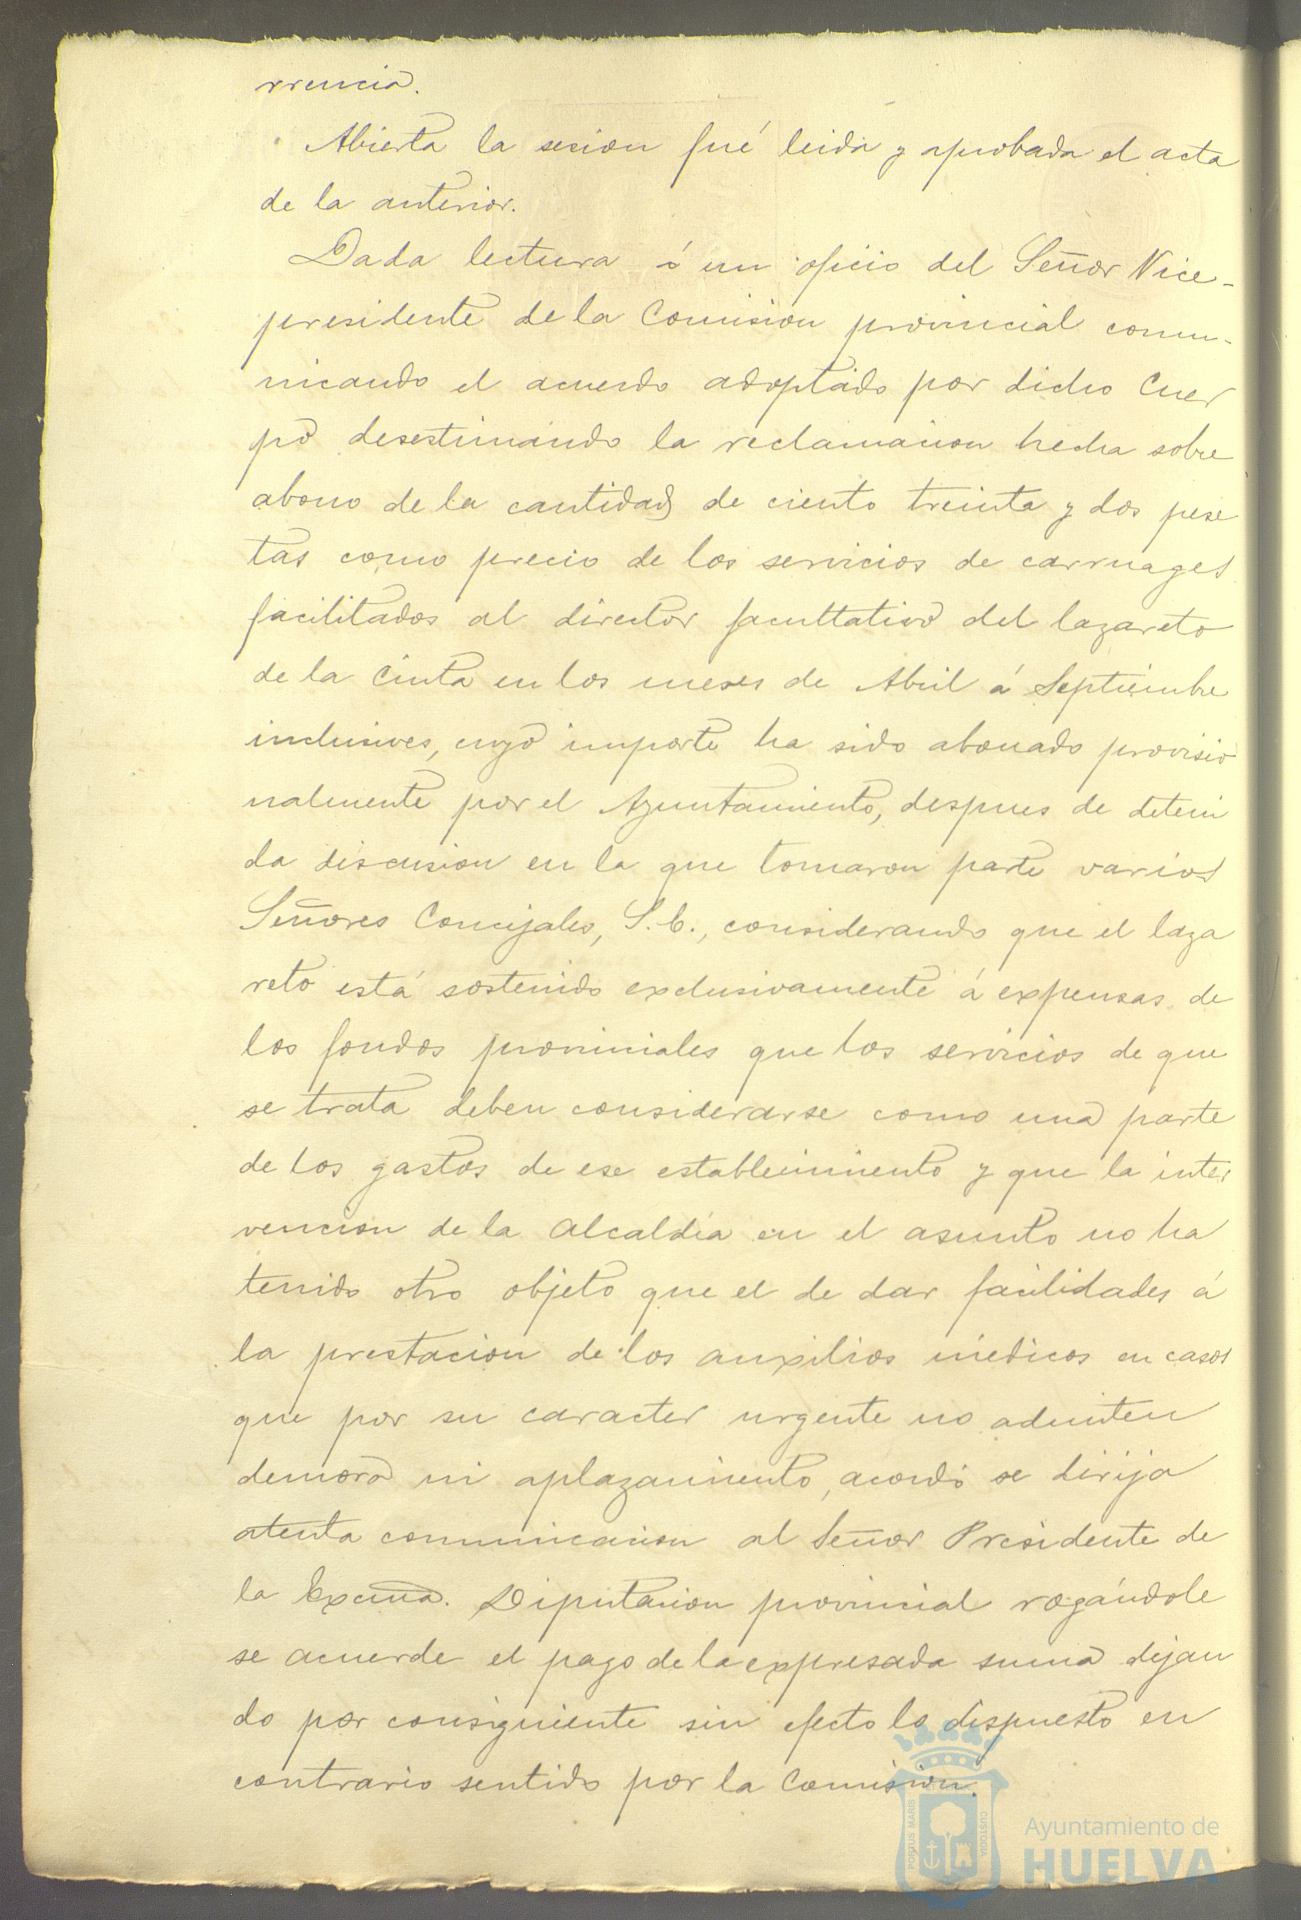 rrencia.
Abierta la sesion fué leida y aprobada el acta
de la anterior.
Dada lectura á un oficio del Señor Vice-
presidente de la Comision provincial comu-
nicando el acuerdo adoptado por dicho Cuer
po desestimando la reclamacion hecha sobre
abono de la cantidad de ciento treinta y dos pese
tas como precio de los servicios de carruages
facilitados al director facultativo del lazareto
de la Cinta en los meses de Abril á Septiembre
inclusives, cuyo importe ha sido abonado provisio
nalmente por el Ayuntamiento, despues de deteni
da discusion en la que tomaron parte varios
Señores Concejales, S. C., considerando que el laza
reto está sostenido exclusivamente á expensas de
los fondos provinciales que los servicios de que
se trata deben considerarse como una parte
de los gastos de ese establecimiento y que la inter
vencion de la Alcaldía en el asunto no ha
tenido otro objeto que el de dar facilidades á
la prestacion de los auxilios médicos en casos
que por su caracter urgente no admiten
demora ni aplazamiento, acordó se dirija
atenta comunicacion al Señor Presidente de
la Excma. Diputacion provincial rogándole
se acuerde el pago de la expresada suma dejan
do por consiguiente sin efecto lo dispuesto en
contrario sentido por la Comision.
PORTUS MARIS CUSTODIA
Ayuntamiento de
HUELVA